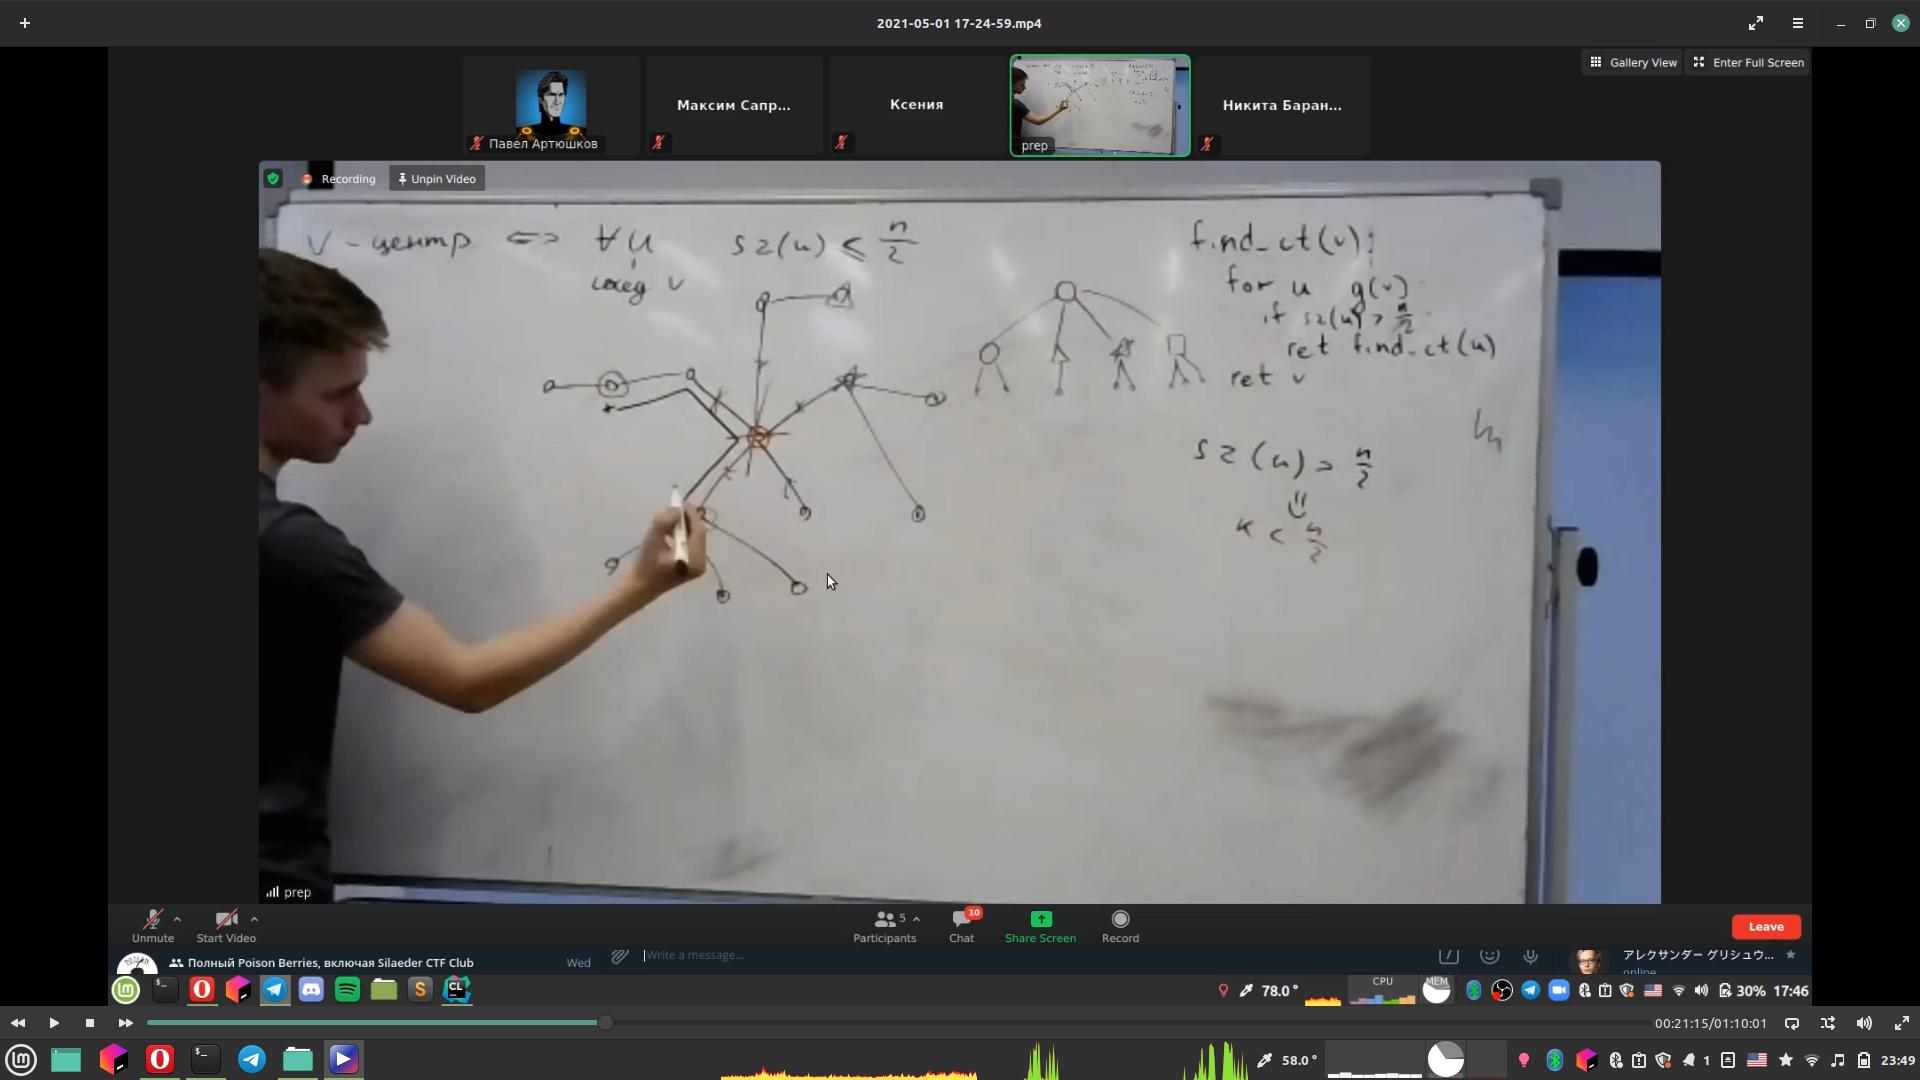 2021-05-01 17-24-59.mp4
Gallery View
Enter Full Screen
Павел Артюшков
Максим Сапр...
Ксения
prep
Никита Баран...
Recording
Unpin Video
v - центр <=> ∀u sz(u) ≤ n/2
v
find_ct(v):
for u g(v)
if sz(u) > n/2
ret find_ct(u)
ret v
sz(u) > n/2
k < n/2
prep
Unmute
Start Video
Participants
5
Chat
10
Share Screen
Record
Leave
Полный Poison Berries, включая Silaeder CTF Club
Wed
Write a message...
アレクサンダー グリシュウ...
online
78.0 °
CPU
MEM
30%
17:46
00:21:15/01:10:01
58.0 °
1
23:49